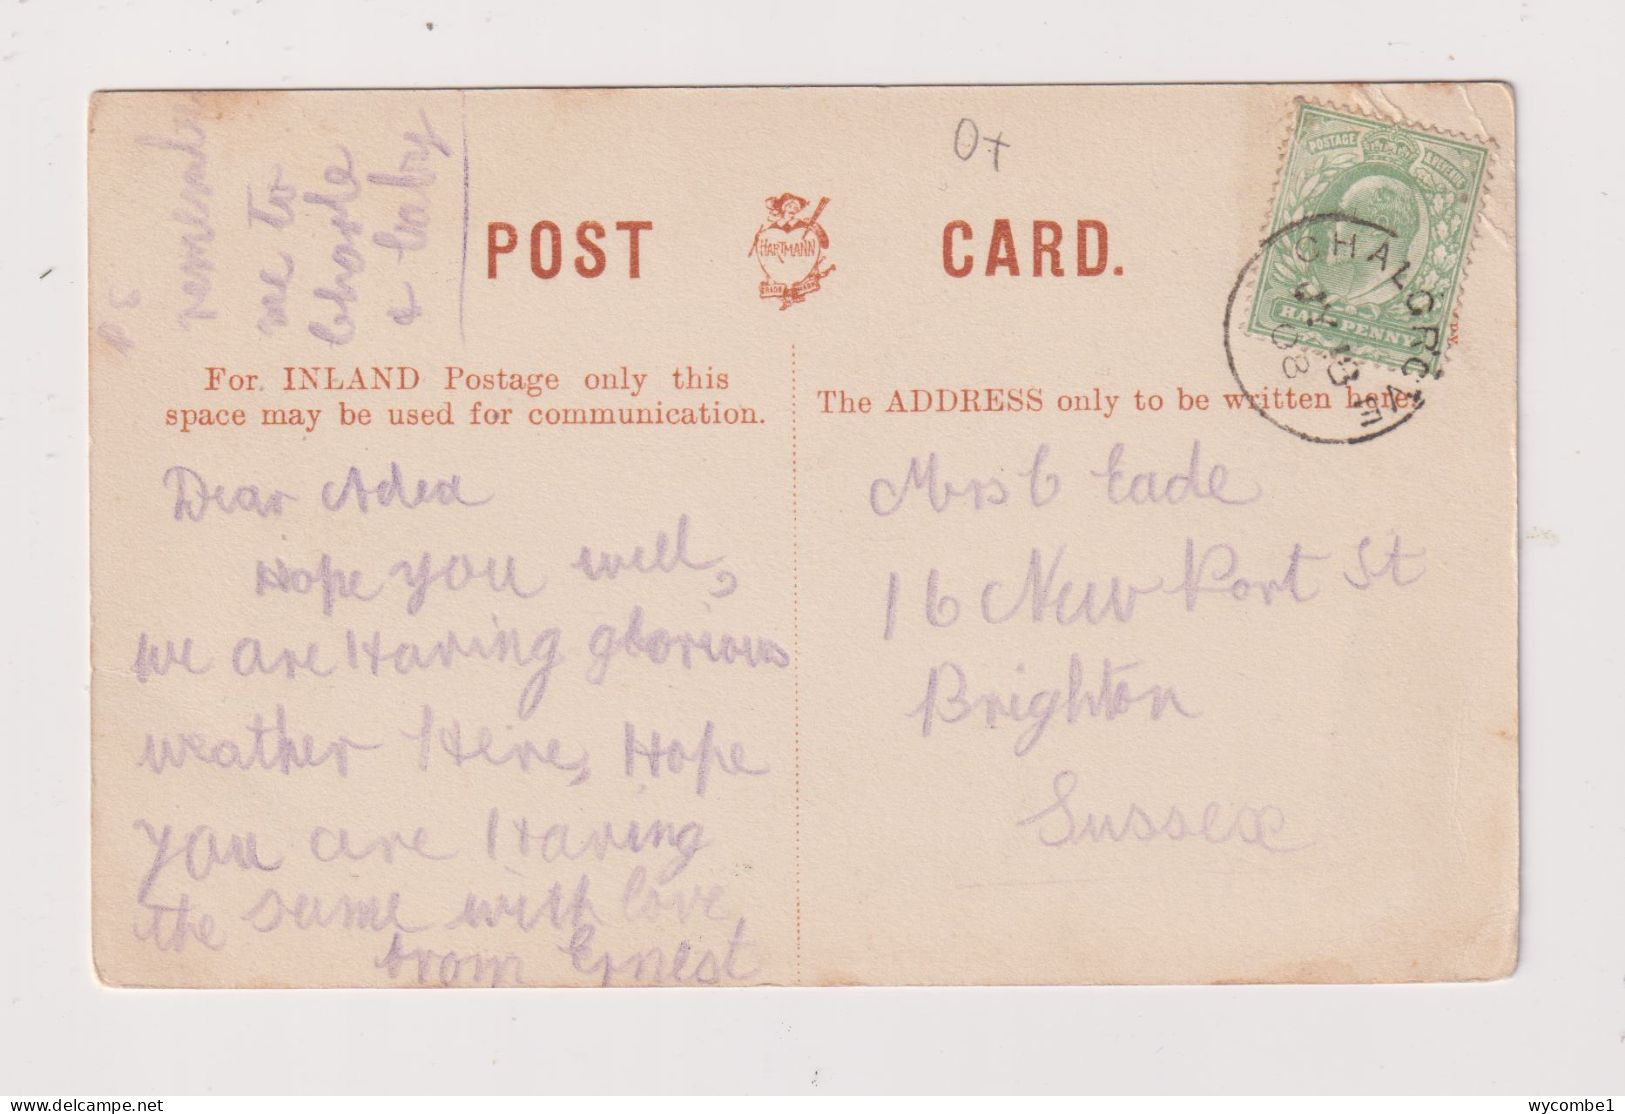 POST
HARTMANN
TRADE MARK
CARD.
POSTAGE REVENUE
HALFPENNY
CHALGROVE
08
For INLAND Postage only this
space may be used for communication.
The ADDRESS only to be written here.
Dear Adea
Hope you well,
we are Having glorious
weather Here, Hope
you are Having
the same with love
from Ernest
Mrs C Eade
16 New Port St
Brighton
Sussex
me to
Charle
& baby
wycombe1